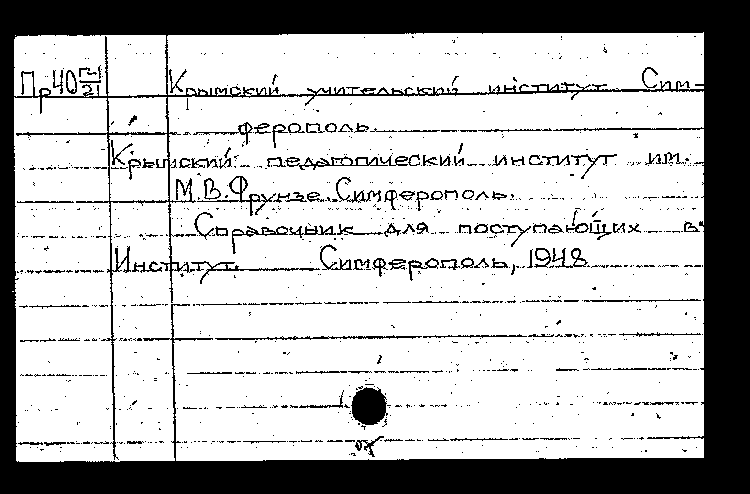 Пр40 Г-1/21 Крымский учительский институт Сим-
ферополь.
Крымский педагогический институт им.
М.В.Фрунзе. Симферополь.
Справочник для поступающих в
Институт. Симферополь, 1948